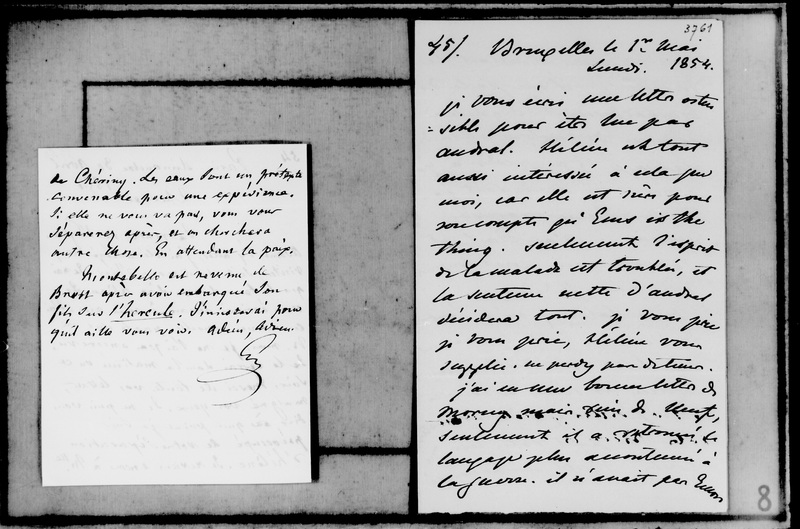 de Chériny. Les eaux sont un prétexte
convenable pour une expérience.
Si elle ne vous va pas, vous vous
séparerez après, et on cherchera
autre chose. En attendant la paix.
Montebello est revenu de
Brest après avoir embarqué son
fils sur l'hercule. J'insisterai pour
qu'il aille vous voir. Adieu, Adieu.
3761
45/. Bruxelles le 1er Mai
Lundi. 1854.
je vous écris une lettre osten
=sible pour être lue par
andral. Hélène est tout
aussi intéressée à cela que
moi, car elle est sûre pour
son compte qu'Ems is the
thing. seulement l'esprit
de la malade est troublé, et
la sentence nette d'andral
décidera tout. je vous prie
je vous prie, Hélène vous
supplie. ne perdez pas de tems.
j'ai eu une bonne lettre de
Morny mais rien de neuf,
seulement il a retrouvé le
langage plus accoutumé à
la guerre. il n'avait pas
8